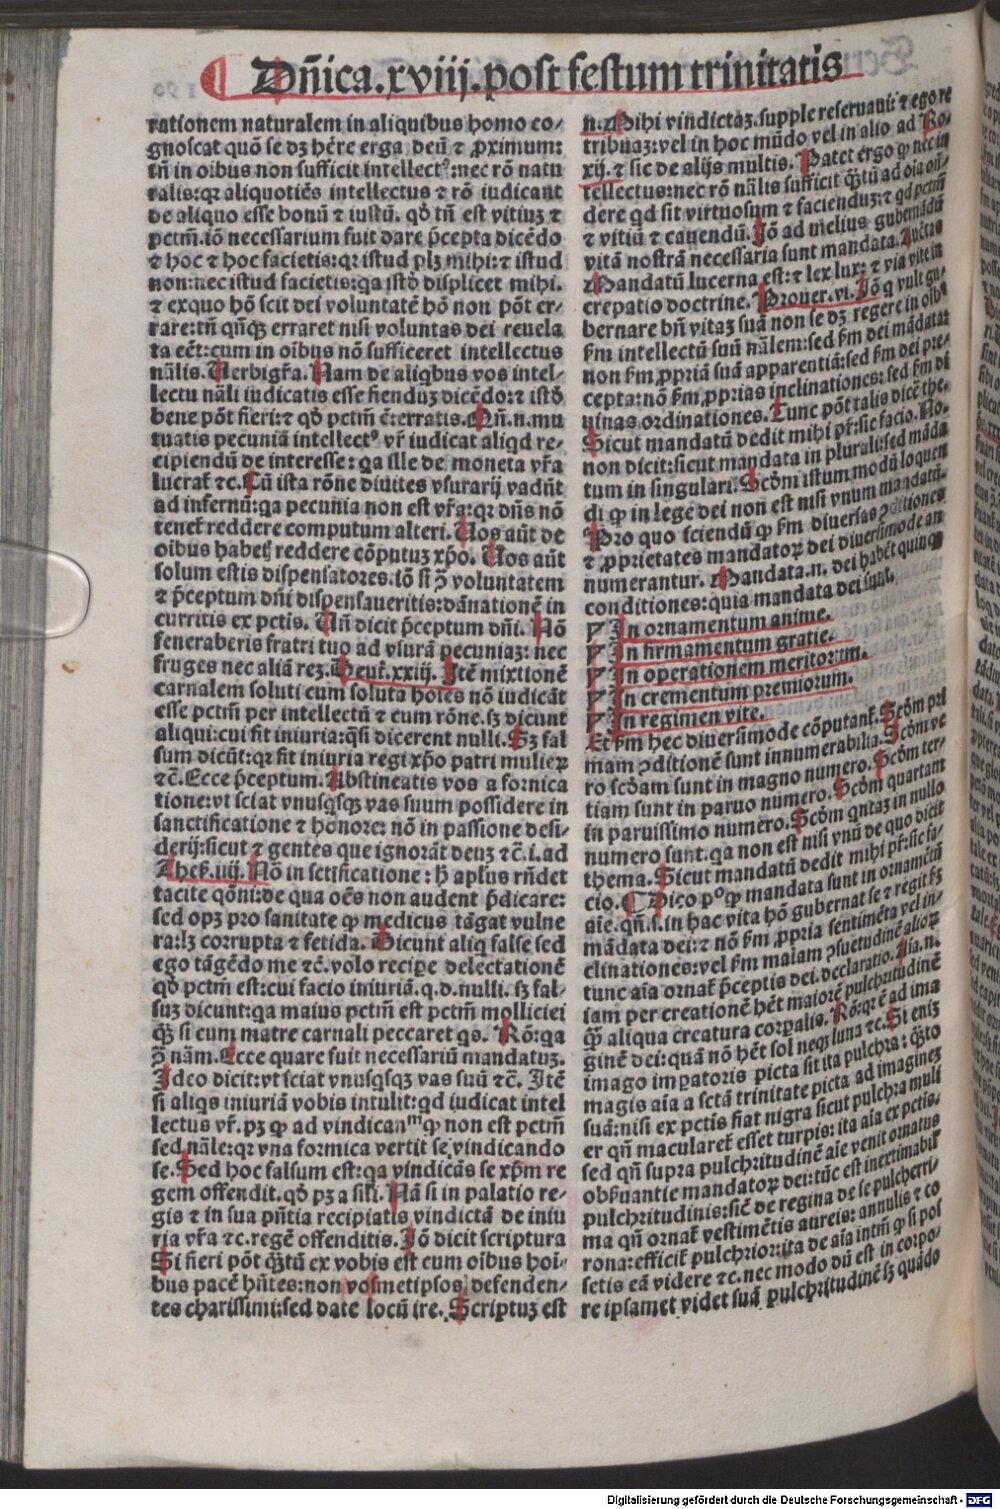 Dn̄ica.xviij.post festum trinitatis
rationem naturalem in aliquibus homo co-
gnoscat quō se dz hēre erga deū ⁊ ꝓximum:
tn̄ in oībus non sufficit intellectꝰ: nec rō natu
ralis: qꝛ aliquotiēs intellectus ⁊ rō iudicant
de aliquo esse bonū ⁊ iustū. qd̓ tn̄ est vitiuꝫ ⁊
pctm̄. iō necessarium fuit dare p̄cepta dicēdo
⁊ hoc ⁊ hoc facietis: qꝛ istud plꝫ mihi: ⁊ istud
non: nec istud facietis: qa istd̓ displicet mihi.
⁊ ex quo hō scit dei voluntatē hō non pōt er-
rare: tn̄ qn̄qꝫ erraret nisi voluntas dei reuela
ta eēt: cum in oībus nō sufficeret intellectus
nālis. Uerbigr̄a. Nam de aliqbus vos intel-
lectu nāli iudicatis esse fienduꝫ dicēdo: ⁊ istd̓
bene pōt fieri: ⁊ qd̓ pctm̄ ē: erratis. Qn̄.n.mu
tuatis pecuniā intellectꝰ vr̄ iudicat aliqd re-
cipiendū de interesse: qa ille de moneta vr̄a
lucrat̄ ⁊c. Cū ista rōne diuites vsurarij vadūt
ad infernū: qa pecunia non est vr̄a: qꝛ dn̄s nō
tenet̄ reddere computum alteri. Uos aūt de
oībus habetꝭ reddere cōputuꝫ xp̄o. Uos aūt
solum estis dispensatores. iō si ꝯ̄ voluntatem
⁊ p̄ceptum dn̄i dispensaueritis: dānationē in
curritis ex pctis. Un̄ dicit p̄ceptum dn̄i. Nō
feneraberis fratri tuo ad vsurā pecuniaꝫ: nec
fruges nec aliā reꝫ. Deut̄.xxiij. Itē mixtionē
carnalem soluti cum soluta hoīes nō iudicāt
esse pctm̄ per intellectū ⁊ cum rōne. sꝫ dicunt
aliqui: cui fit iniuria: qsi dicerent nulli. Sꝫ fal
sum dicūt: qꝛ fit iniuria regi xp̄o patri mulieꝝ
⁊c̄. Ecce p̄ceptum. Abstineatis vos a fornica
tione: vt sciat vnusqsqꝫ vas suum possidere in
sanctificatione ⁊ honore: nō in passione desi-
derij: sicut ⁊ gentes que ignorāt deuꝫ ⁊c̄.i.ad
Thes̄.iiij. Nō in sctificatione: h̓ apl̄us rn̄det
tacite qōni: de qua oēs non audent p̄dicare:
sed opꝫ pro sanitate ꝙ medicus tāgat vulne
ra: lꝫ corrupta ⁊ fetida. Dicunt aliq false sed
ego tāgēdo me ⁊c̄. volo recipe delectationē
qd̓ pctm̄ est: cui facio iniuriā. q.d. nulli. sꝫ fal-
suꝫ dicunt: qa maius pctm̄ est pctm̄ molliciei
qꝫ̄ si cum matre carnali peccaret qs. Rō: qa
ꝯ̄ nām. Ecce quare fuit necessariū mandatuꝫ.
Ideo dicit: vt sciat vnusqsqꝫ vas suū ⁊c̄. Itē
si aliqs iniuriā vobis intulit: qd iudicat intel
lectus vr̄. pꝫ ꝙ ad vindicanᵐ ꝙ non est pctm̄
sed nāle: qꝛ vna formica vertit se vindicando
se. Sed hoc falsum est: qa vindicās se xp̄m re
gem offendit. qd̓ pꝫ a sil̄i. Nā si in palatio re-
gis ⁊ in sua pn̄tia recipiatis vindictā de iniu
ria vr̄a ⁊c. regē offenditis. Iō dicit scriptura
Si fieri pōt qꝫ̄tū ex vobis est cum oībus hoī-
bus pacē hn̄tes: non vosmetipsos defenden-
tes charissimi: sed date locū ire. Scriptuꝫ est
n. Mihi vindictaꝫ. supple reseruaui: ⁊ ego re
tribuaꝫ: vel in hoc mūdo vel in alio ad Ro.
xij. ⁊ sic de alijs multis. Patet ergo ꝙ nec in
tellectus: nec rō nālis sufficit qꝫ̄tū ad oīa oīn̄-
dere qd sit virtuosum ⁊ facienduꝫ: ⁊ qd pctm̄
⁊ vitiū ⁊ cauendū. Iō ad melius gubernādū
vitā nostrā necessaria sunt mandata. Auctas
Mandatū lucerna est: ⁊ lex lux: ⁊ via vite in
crepatio doctrine. Prouer.vi. Iō q vult gu-
bernare bn̄ vitaꝫ suā non se dꝫ regere in oībꝰ
fm̄ intellectū suū nālem: sed fm̄ dei mādata:
non fm̄ ꝓpriā suā apparentiā: sed fm̄ dei pre-
cepta: nō fm̄ ꝓprias inclinationes: sed fm̄ di
uinas ordinationes. Tunc pōt talis dicē the.
Sicut mandatū dedit mihi pr̄: sic facio. No.
non dicit: sicut mandata in plurali: sed māda
tum in singulari. Scd̓m istum modū loquen
di ꝙ in lege dei non est nisi vnum mandatū.
Pro quo sciendū ꝙ fm̄ diuersas ꝯditiones
⁊ ꝓprietates mandatoꝝ dei diuersimode an
numerantur. Mandata.n. dei habēt quinqꝫ
conditiones: quia mandata dei sunt.
In ornamentum anime.
In firmamentum gratie.
In operationem meritorum.
In crementum premiorum.
In regimen vite.
Et fm̄ hec diuersimode cōputant̄. Scd̓m pri
mam ꝯditionē sunt innumerabilia. Scd̓m ve
ro scd̓am sunt in magno numero. Scd̓m ter-
tiam sunt in paruo numero. Scd̓m quartam
in paruissimo numero. Scd̓m qntaꝫ in nullo
numero sunt. qa non est nisi vnū de quo dicit
thema. Sicut mandatū dedit mihi pr̄: sic fa-
cio. ¶ Dico pº ꝙ mandata sunt in ornamētū
aīe. qn̄.s. in hac vita hō gubernat se ⁊ regit fꝫ
mādata dei: ⁊ nō fm̄ ꝓpria sentimēta vel in-
clinationes: vel fm̄ malam ꝯsuetudinē alioꝝ
tunc aīa ornat̄ p̄ceptis dei. declaratio. Aīa.n.
iam per creationē hēt maiorē pulchritudinē
qꝫ̄ aliqua creatura corpalis. Rō: qꝛ ē ad ima
ginē dei: quā nō hēt sol neqꝫ luna ⁊c. Si eniꝫ
imago impatoris picta sit ita pulchra: qꝫ̄to
magis aīa a sctā trinitate picta ad imagineꝫ
suā: nisi ex pctis fiat nigra sicut pulchra muli
er qn̄ macularet̄ esset turpis: ita aīa ex pctis.
sed qn̄ supra pulchritudinē aīe venit ornatus
obseruantie mandatoꝝ dei: tūc est inextimabil̓
pulchritudinis: sicē de regina de se pulcherri-
ma qn̄ ornat̄ vestimētis aureis: annulis ⁊ co
rona: efficit̄ pulchrior: ita de aīa intm̄ ꝙ si pos
setis eā videre ⁊c. nec modo dū est in corpo-
re ipsamet videt suā pulchritudinē sꝫ quādo
Digitalisierung gefördert durch die Deutsche Forschungsgemeinschaft - DFG